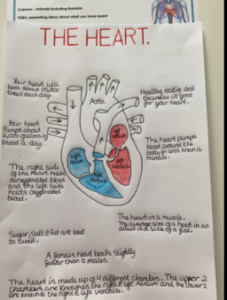 Science – Animals including Humans
THE HEART.
Your heart will
beat about
times each day
Healthy eating and
exercise is good
for your heart.
Aorta
Your heart
Pumps about
2,000 gallons of
blood a day.
The heart pumps
blood around the
body in less than a
minute.
The right side
of the heart holds
deoxygenated blood
and the left side
holds oxygenated
blood.
The heart is a muscle.
The average size of a heart in an
adult is a size of a fist.
Sugar, salt & fat are bad
A female heart beats slightly
faster than a males.
The heart is made up of 4 different chambers. The upper 2
chambers are known as the right & left Atrium and the lower 2
are known as the right & left ventricle.